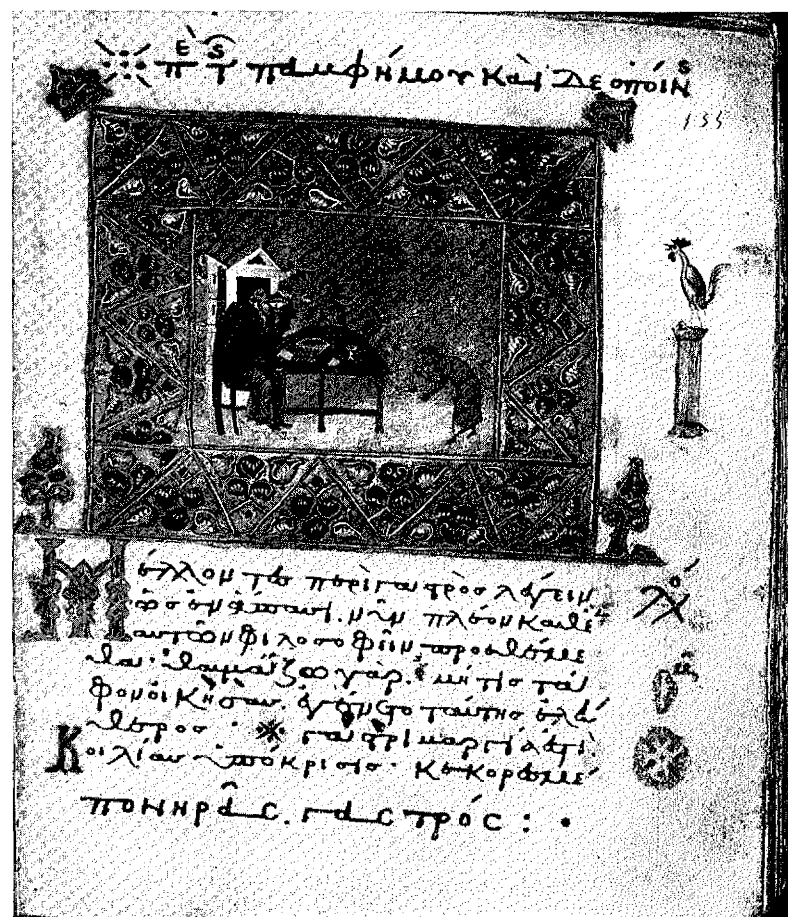 παμφήμου καὶ δεσποίν
Μέλλοντες περὶ γαστρὸς λέγειν
ὡς ἐν ἅπασι. νῦν πλέον καθ' ἑ
αυτῶν φιλοσοφεῖν προεθέμε
θα· θαυμάζω γὰρ. εἰ μή τις τά
φον οἰκήσας. ἐγένετο ταύτης ἐλεύ
θερος · γαστριμαργία ἐστὶ
κοιλίας ὑπόκρισις · κεκορεσμέ
πονηρᾶς. γαστρός : ·